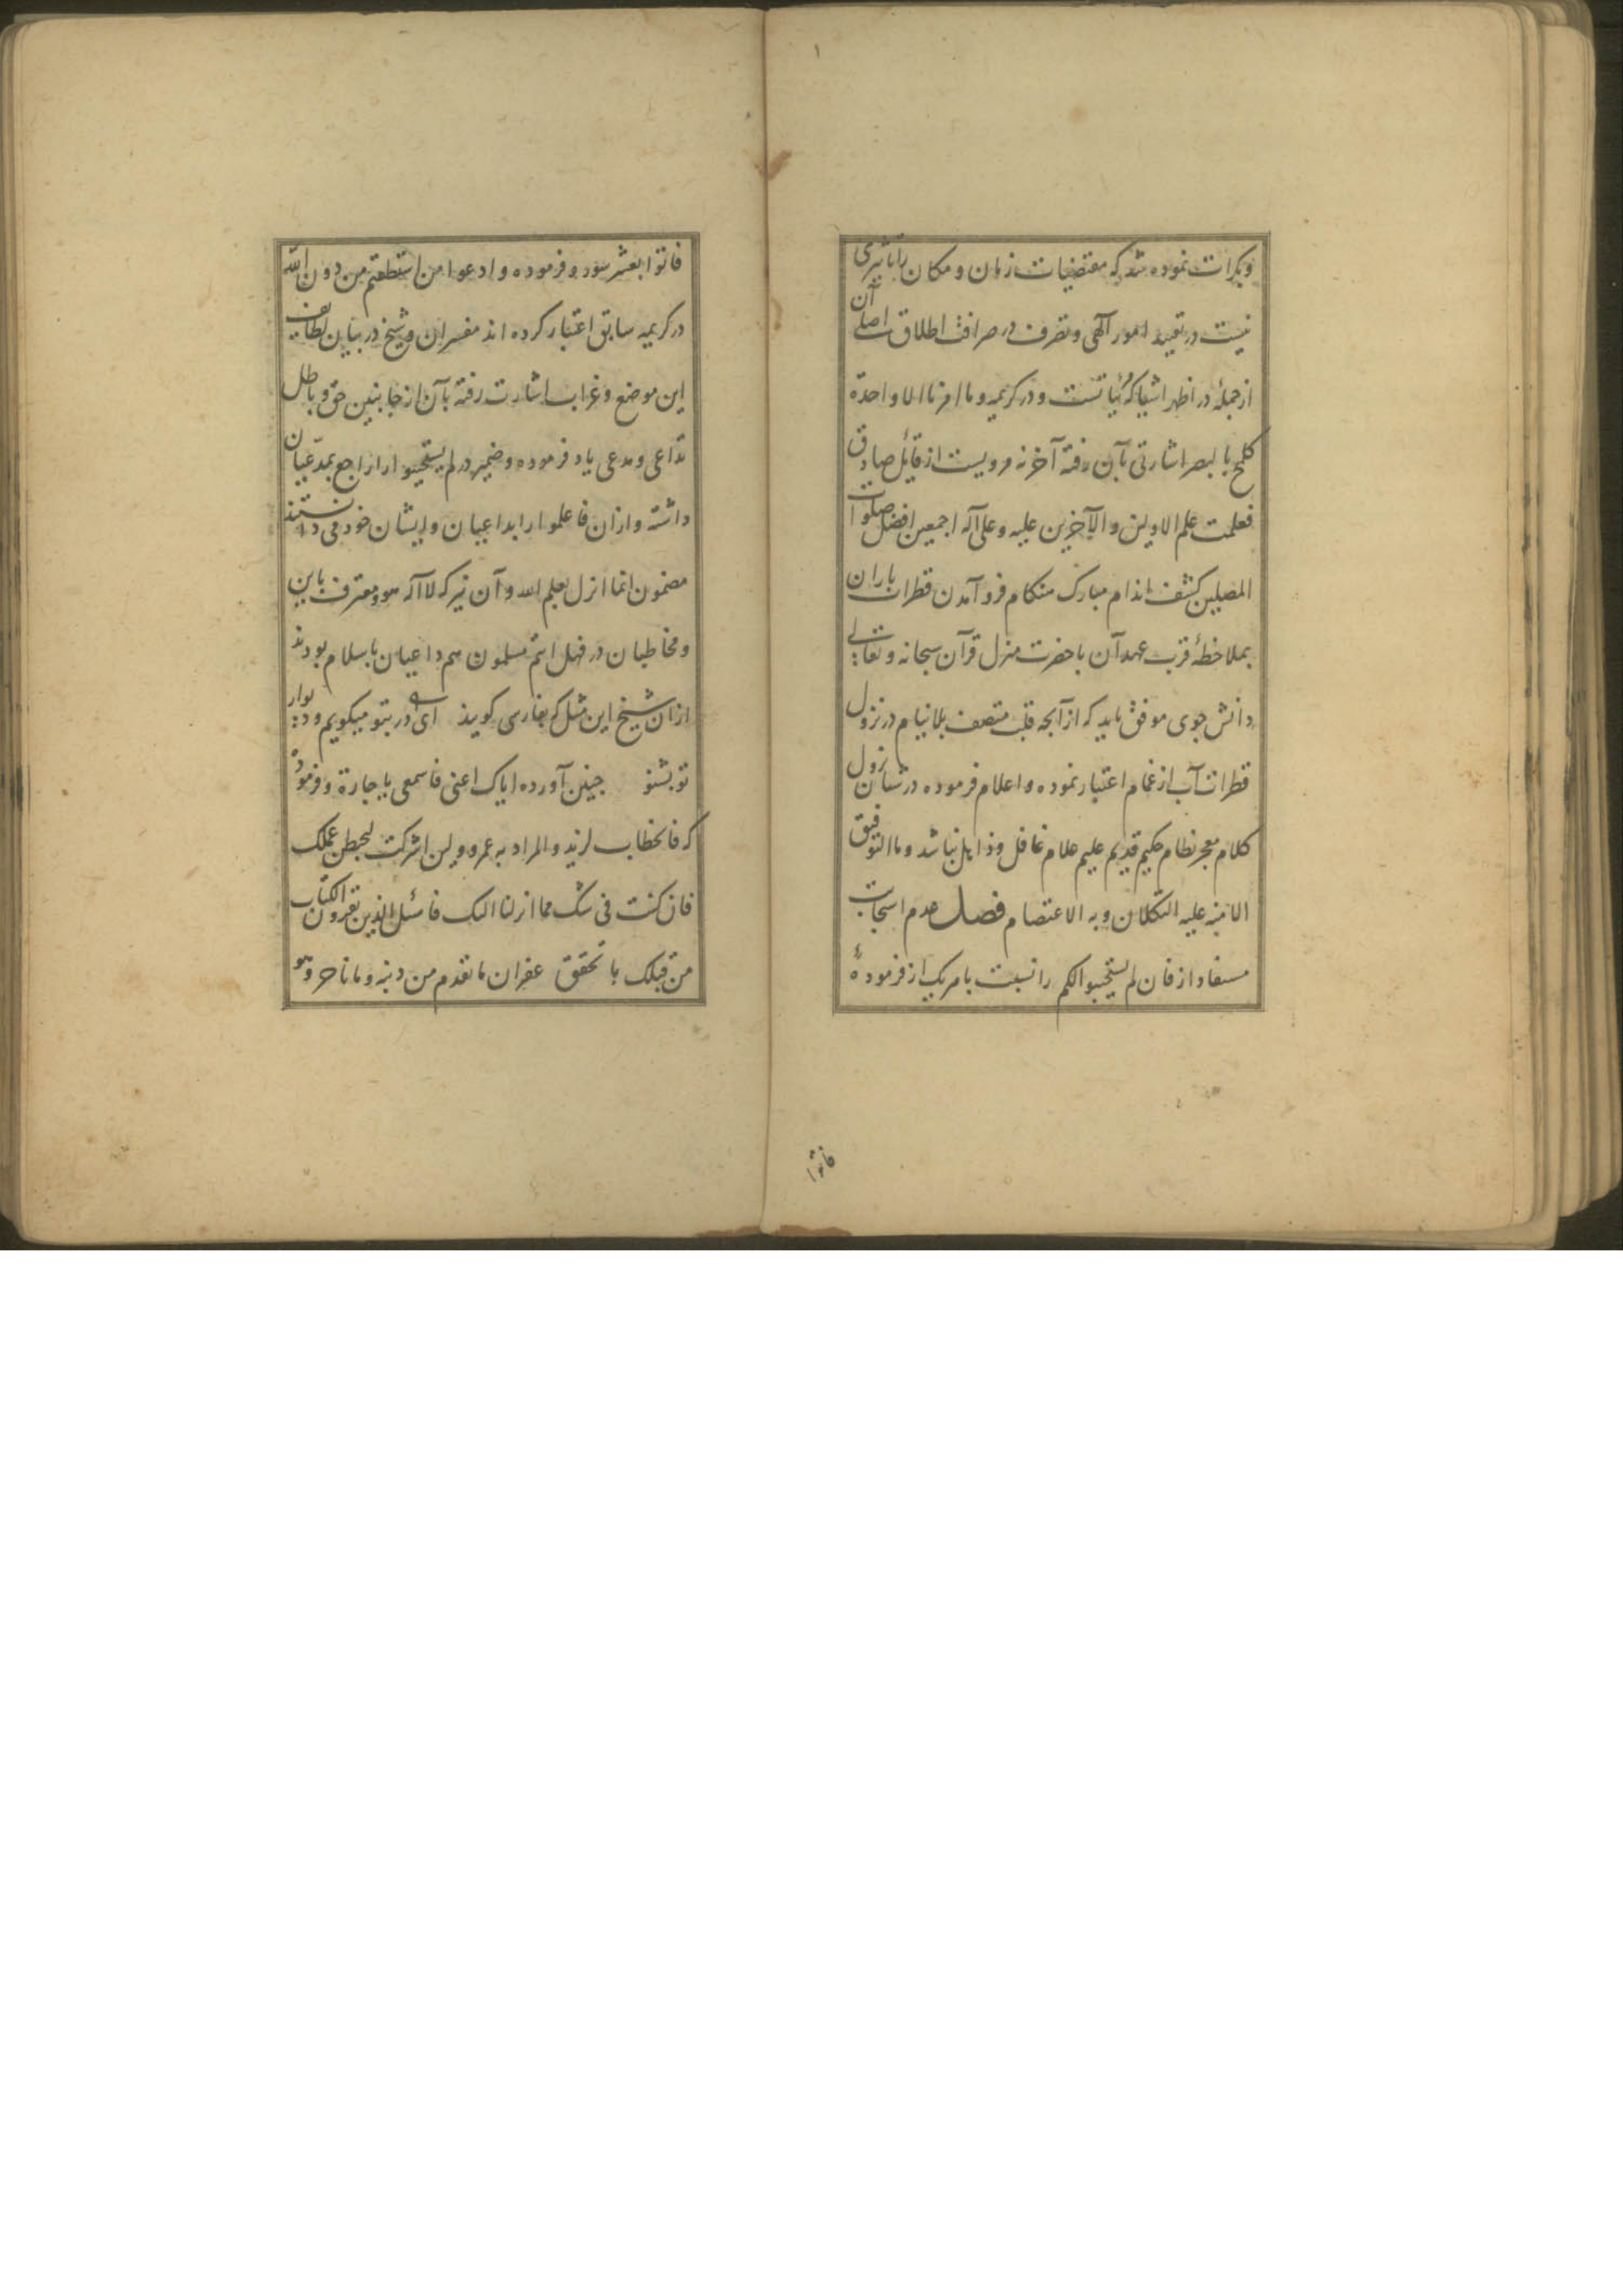 وبکرات نموده شد که مقتضیات زمان و مکان را تاثیری
نیست در تقیید امور آلهی و تصرف در صرافت اطلاق اصلی آن
از جمله در اظهر اشیا که نیاتست و در کریمه وما امرنا الا واحدة
کلمح بالبصر اشارتی بآن رفته آخر نه مرویست از قایل صادق
فعلمت علم الاولین والآخرین علیه وعلی آله اجمعین افضل صلوات
المصلین کشف اندام مبارک هنکام فرو آمدن قطرات باران
بملاحظهٔ قرب عهد آن با حضرت منزل قرآن سبحانه وتعالی
دانش جوی موفق باید که از آنچه قلب متصف بلاینام در نزول
قطرات آب از غمام اعتبار نموده و اعلام فرموده در شان نزول
کلام معجز نظام حکیم قدیم علیم علام غافل و ذاهل نباشد وما التوفیق
الا منه علیه التکلان وبه الاعتصام فصل عدم استجابت
مستفاد از فان لم یستجیبوا لکم را نسبت با مریک از فرمودهٔ
فاتوا
فاتوا بعشر سور و فرموده وادعوا من استطعتم من دون الله
در کریمه سابق اعتبار کرده اند مفسران و شیخ در بیان لطایف
این موضع و غراب اشارت رفته بآن از جانبین حق و باطل
تداعی و مدعی یاد فرموده و ضمیر در لم یستجیبوا را راجع بمدعیان
داشته و ازان فاعلموا را بداعیان و ایشان خود می دانستند
مضمون انما انزل بعلم الله و آن نیز که لا اله هو و معترف باین
و مخاطبان در فهل انتم مسلمون هم داعیان باسلام بودند
ازان شیخ این مثل که بفارسی کویند ای در بتو میکویم و دیوار
تو بشنو چنین آورده ایاک اعنی فاسمعی یا جارة و فرموده
که فالخطاب لزید والمراد به عمرو ولین اشرکت لیحبطن عملک
فان کنت فی شک مما انزلنا الیک فاسئل الذین یقرون الکتاب
من قبلک با تحقق غفران ما تقدم من ذنبه وما تاخر وهو